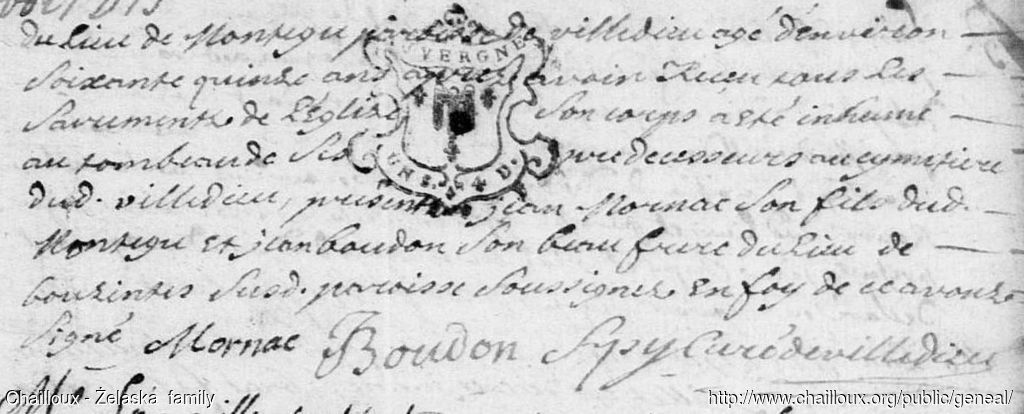 du lieu de Montegu parroisse de villedieu agé d'environ
soixante quinze ans apres avoir Reçu tous les
sacrements de L'Eglize son corps a eté inhumé
au tombeau de ses predecesseurs au cymitiere
dud. villedieu, presents jean Mornac son fils dud.
Montegu et jean boudon son beau frere du lieu de
bouzentes susd. paroisse soussignez en foy de ce avons
signé Mornac Boudon Spy Curé de villedieu
AUVERGNE
UN S. 4 D.
Chailloux - Żelaska family
http://www.chailloux.org/public/geneal/